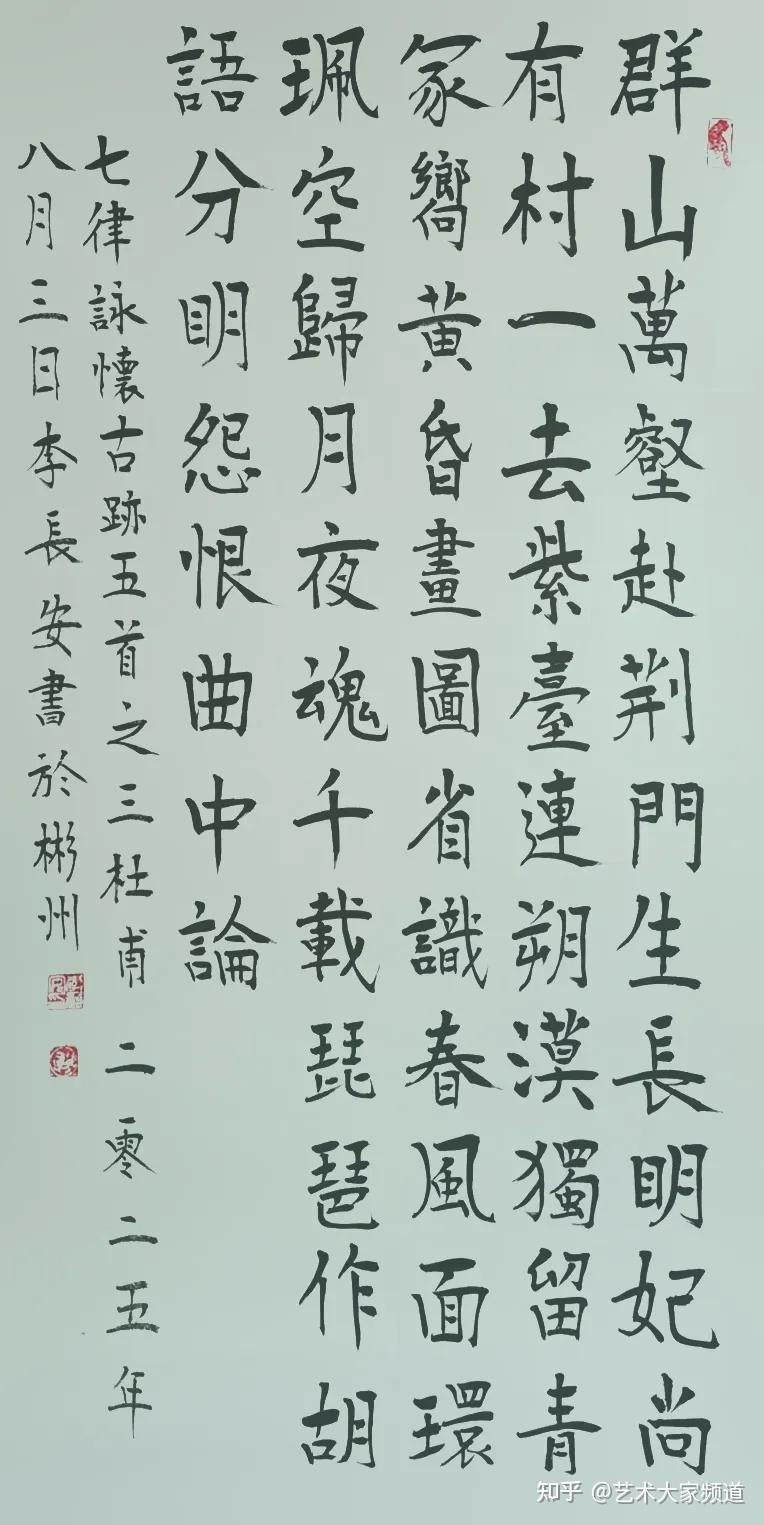 群山萬壑赴荆門生長明妃尚
有村一去紫臺連朔漠獨留青
冢嚮黄昏畫圖省識春風面環
珮空歸月夜魂千載琵琶作胡
語分明怨恨曲中論
七律詠懷古跡五首之三杜甫 二零二五年
八月三日李長安書於彬州
知乎 @艺术大家频道